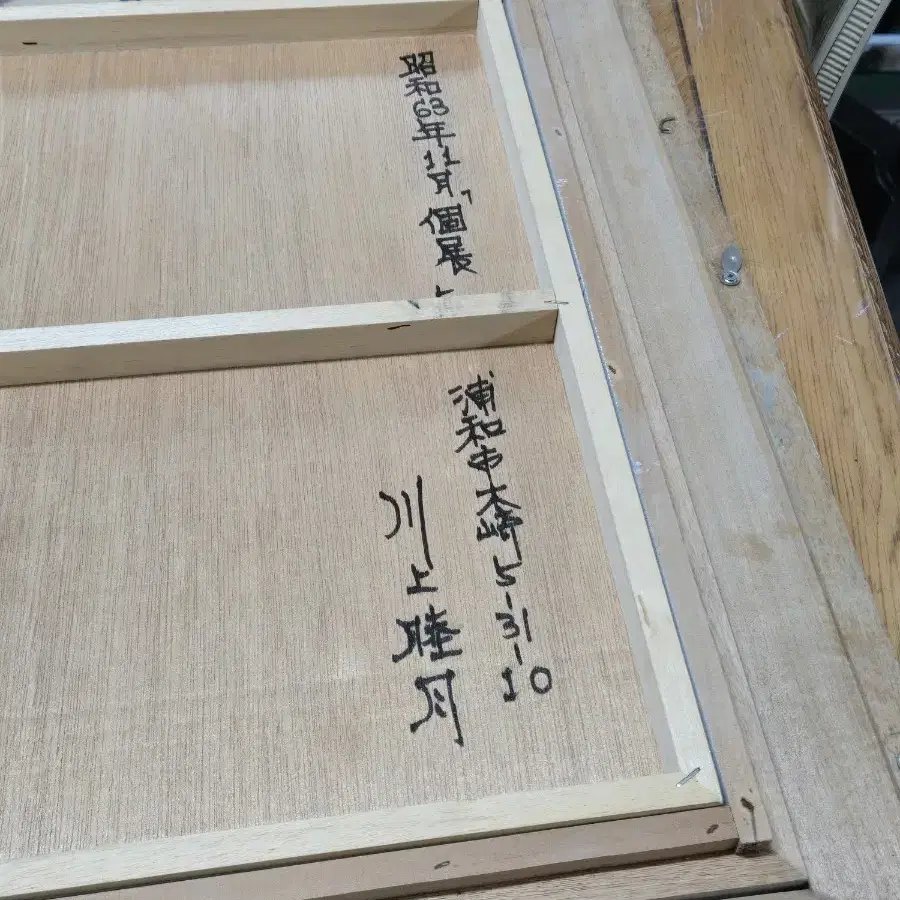 昭和63年11月「個展」
浦和市大崎5-31-10
川上睦月